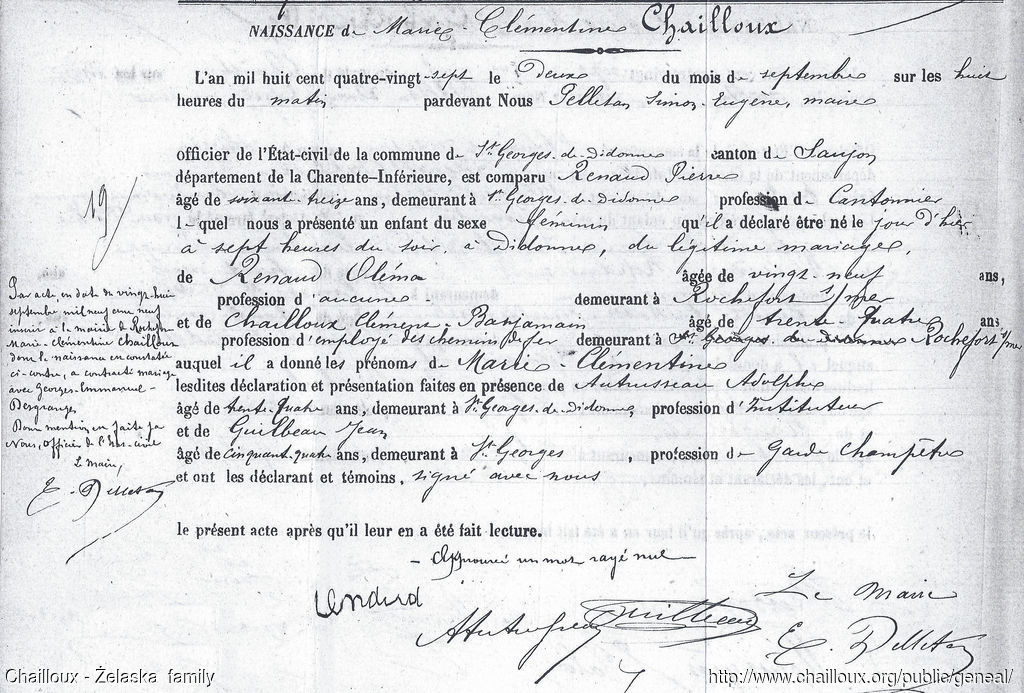 NAISSANCE de Marie-Clémentine Chailloux
L'an mil huit cent quatre-vingt-sept le Deux du mois de septembre sur les huit
heures du matin, pardevant Nous Pelletan Simon-Eugène, maire
officier de l'État-civil de la commune de St Georges-de-Didonne canton de Saujon
département de la Charente-Inférieure, est comparu Renaud Pierre
âgé de soixante-treize ans, demeurant à St Georges-de-Didonne profession de Cantonnier
lequel nous a présenté un enfant du sexe féminin qu'il a déclaré être né le jour d'hier
à sept heures du soir, à Didonne, du légitime mariage,
de Renaud Oléma âgée de vingt-neuf ans,
profession d'aucune demeurant à Rochefort s/mer
et de Chailloux Clément, Benjamin âgé de trente-quatre ans
profession d'employé des chemins de fer demeurant à St Georges de Didonne Rochefort s/mer
auquel il a donné les prénoms de Marie-Clémentine
lesdites déclaration et présentation faites en présence de Autrusseau Adolphe
âgé de trente-quatre ans, demeurant à St Georges-de-Didonne profession d'Instituteur
et de Guilbeau Jean
âgé de cinquante-quatre ans, demeurant à St Georges, profession de Garde Champêtre
et ont les déclarant et témoins, signé avec nous
le présent acte après qu'il leur en a été fait lecture.
- Approuvé un mot rayé nul -
19/
Par acte en date du vingt-huit
septembre mil neuf cent neuf
inscrit à la mairie de Rochefort
Marie-Clémentine Chailloux
dont la naissance est constatée
ci-contre, a contracté mariage
avec Georges-Emmanuel-
Desgranges
Pour mention en faite par
Nous, officier de l'État-civil
Le Maire,
E. Pelletan
Renaud
A Autrusseau Guilbeau
Le Maire
E. Pelletan
Chailloux - Żelaska family
http://www.chailloux.org/public/geneal/